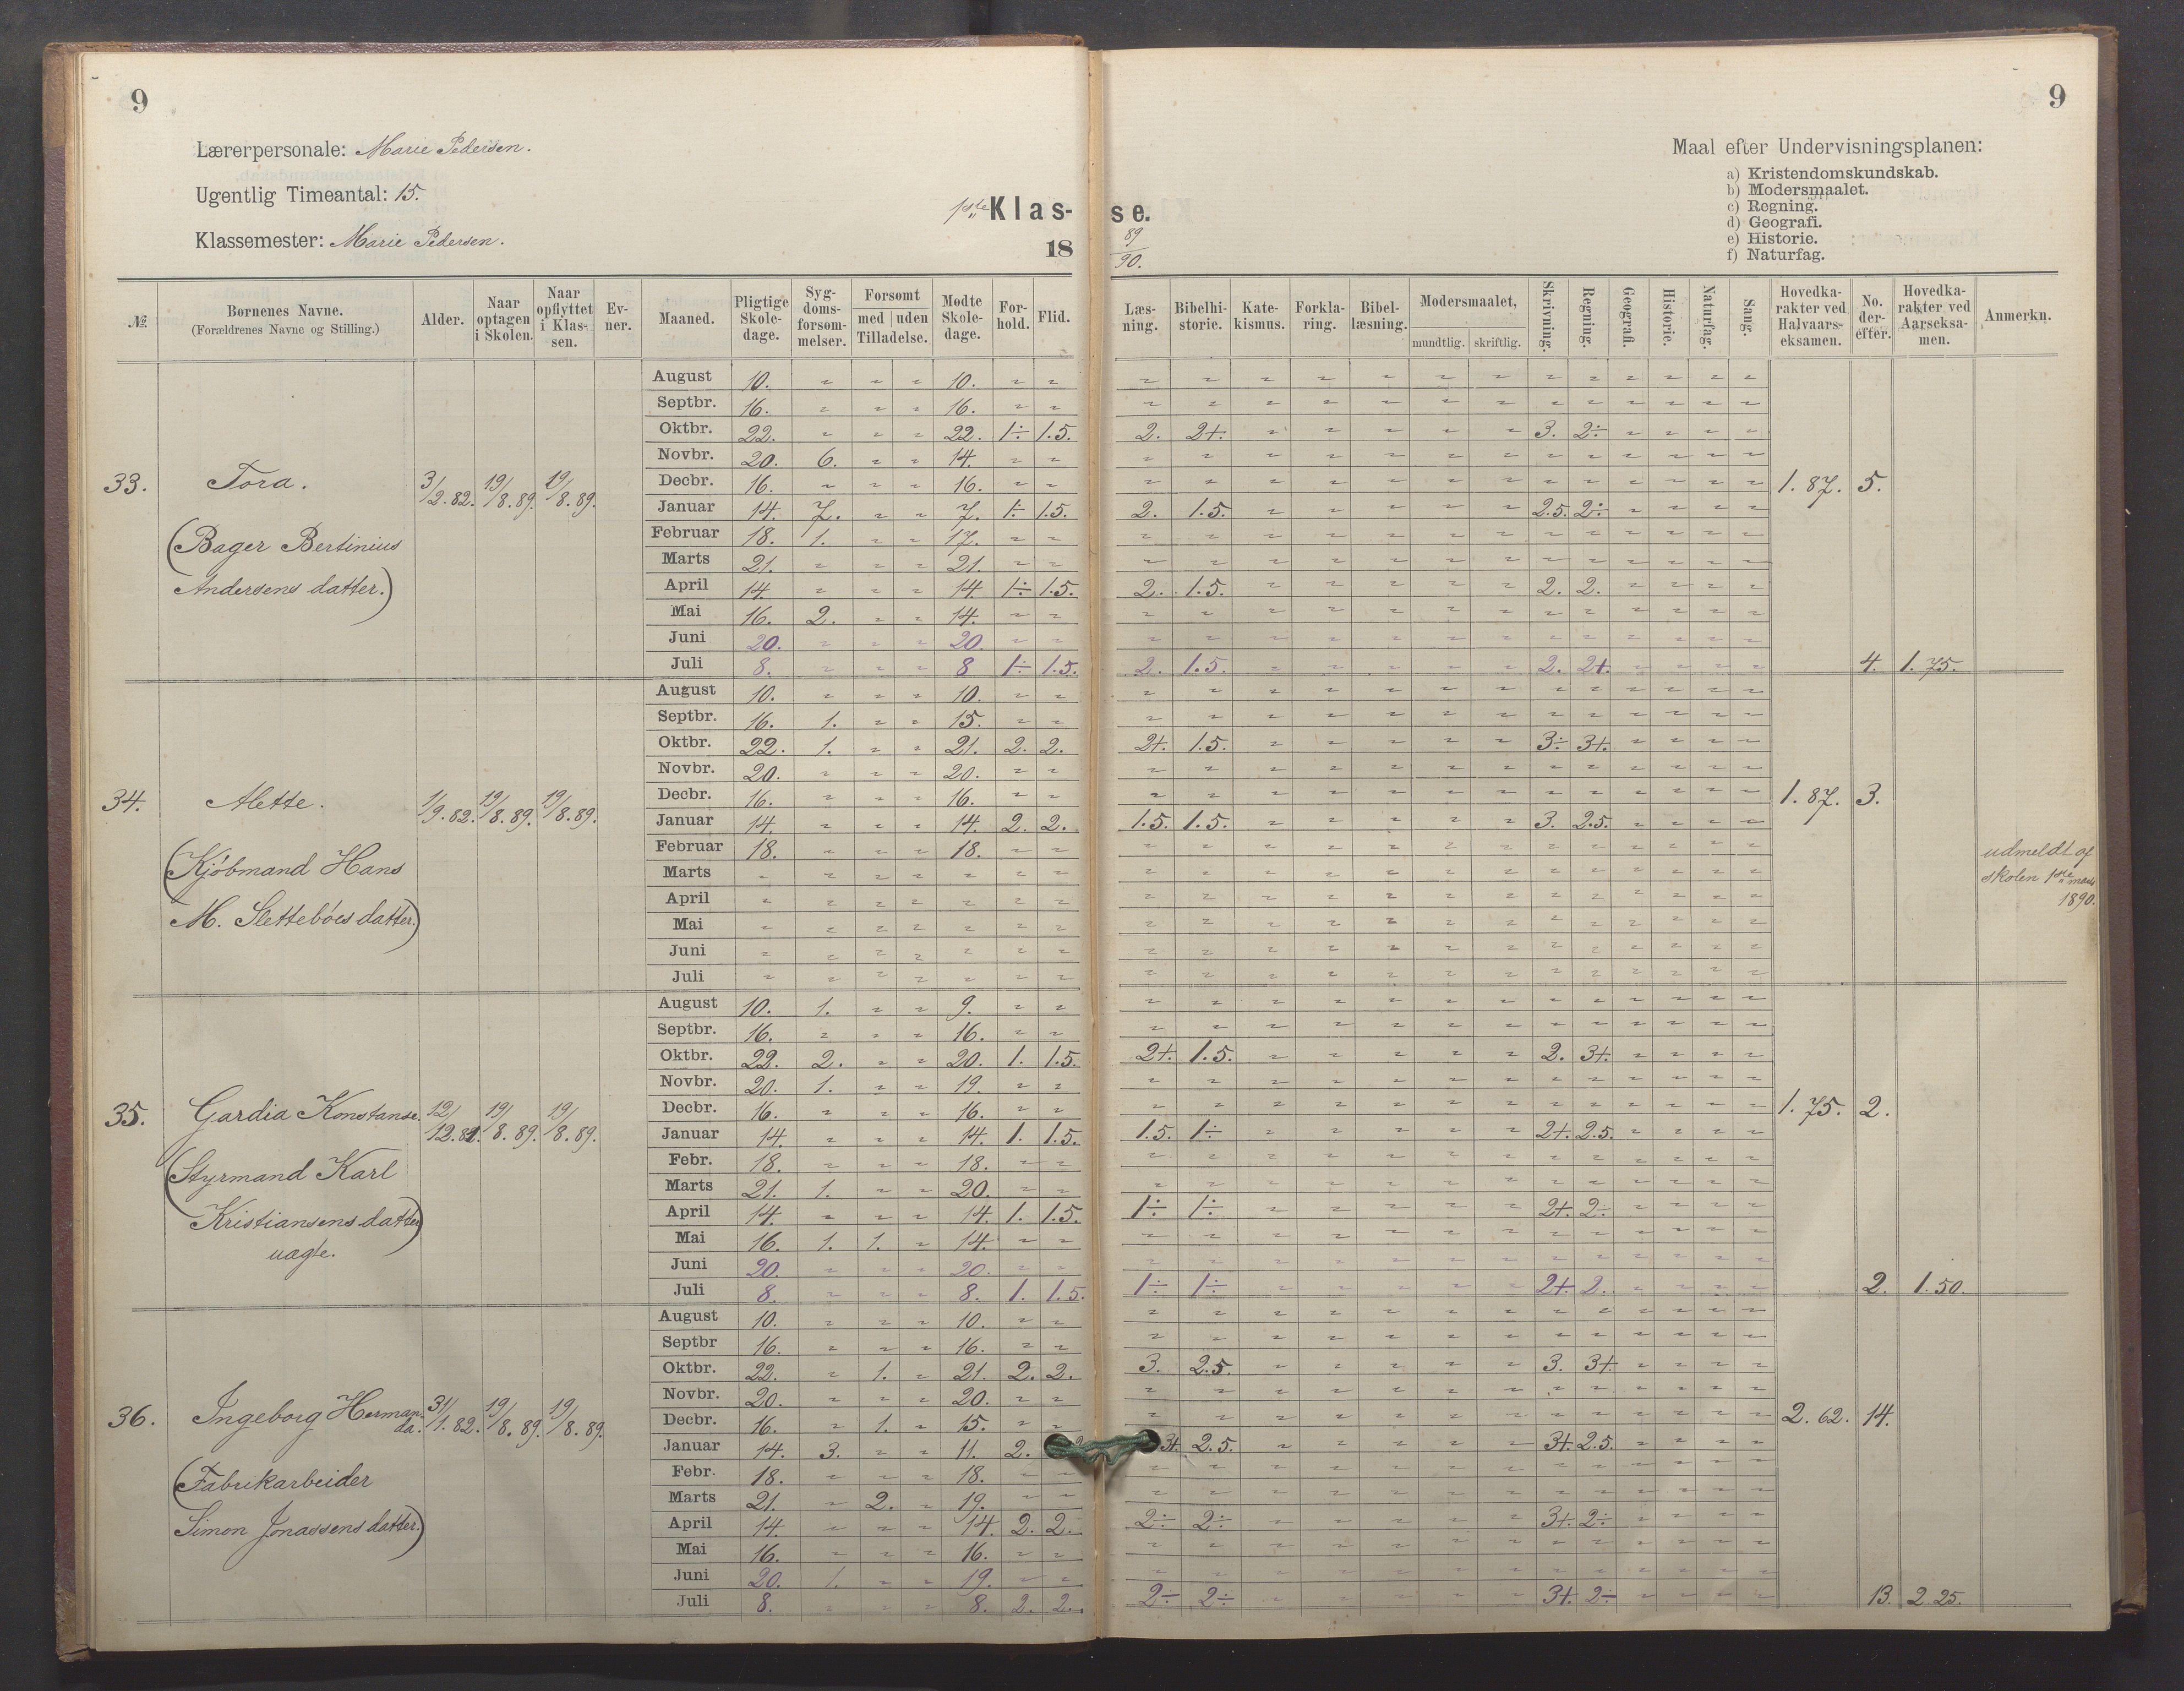 9
9
Lærerpersonale: Marie Pedersen.
Ugentlig Timeantal: 15.
Klassemester: Marie Pedersen.
1ste Klas-
se.
18
89/90.
Maal efter Undervisningsplanen:
a) Kristendomskundskab.
b) Modersmaalet.
c) Regning.
d) Geografi.
e) Historie.
f) Naturfag.
№ Børnenes Navne. (Forældrenes Navne og Stilling.) Alder. Naar optagen i Skolen. Naar opflyttet i Klassen. Evner. Maaned. Pligtige Skoledage. Sygdomsforsømmelser. Forsømt med | uden Tilladelse. Mødte Skoledage. Forhold. Flid. Læsning. Bibelhistorie. Katekismus. Forklaring. Bibellæsning. Modersmaalet, mundtlig. skriftlig. Skrivning. Regning. Geografi. Historie. Naturfag. Sang. Hovedkarakter ved Halvaarseksamen. No. derefter. Hovedkarakter ved Aarseksamen. Anmerkn.
33. Tora. 3/2.82. 19/8.89. 19/8.89.
(Bager Bertinius
Andersens datter.)
August 10. " " " 10. " " " " " " " " " " " " " " "
Septbr. 16. " " " 16. " " " " " " " " " " " " " " "
Oktbr. 22. " " " 22. 1÷ 1.5. 2. 2+. " " " " " 3. 2÷ " " " "
Novbr. 20. 6. " " 14. " " " " " " " " " " " " " " "
Decbr. 16. " " " 16. " " " " " " " " " " " " " " " 1.87. 5.
Januar 14. 7. " " 7. 1÷ 1.5. 2. 1.5. " " " " " 2.5. 2÷ " " " "
Februar 18. 1. " " 17. " " " " " " " " " " " " " " "
Marts 21. " " " 21. " " " " " " " " " " " " " " "
April 14. " " " 14 1÷ 1.5. 2. 1.5. " " " " " 2. 2. " " " "
Mai 16. 2. " " 14. " " " " " " " " " " " " " " "
Juni 20. " " " 20. " " " " " " " " " " " " " " "
Juli 8. " " " 8 1÷ 1.5. 2. 1.5. " " " " " 2. 2+. " " " " 4. 1.75.
34. Alette. 1/9.82. 19/8.89. 19/8.89.
(Kjøbmand Hans
M. Slettebøes datter.)
August 10. " " " 10. " " " " " " " " " " " " " " "
Septbr. 16. 1. " " 15. " " " " " " " " " " " " " " "
Oktbr. 22. 1. " " 21. 2. 2. 2+. 1.5. " " " " " 3÷ 3+. " " " "
Novbr. 20. " " " 20. " " " " " " " " " " " " " " "
Decbr. 16. " " " 16. " " " " " " " " " " " " " " " 1.87. 3.
Januar 14. " " " 14. 2. 2. 1.5. 1.5. " " " " " 3. 2.5. " " " "
Februar 18. " " " 18. " " " " " " " " " " " " " " "
Marts " " " " " " " " " " " " " " " " " " " "
April " " " " " " " " " " " " " " " " " " " "
Mai " " " " " " " " " " " " " " " " " " " "
Juni " " " " " " " " " " " " " " " " " " " "
Juli " " " " " " " " " " " " " " " " " " " "
udmeldt af
skolen 1ste marts
1890.
35. Gardia Konstanse. 12/12.81. 19/8.89. 19/8.89.
(Styrmand Karl
Kristiansens datter)
uægte.
August 10. 1. " " 9. " " " " " " " " " " " " " " "
Septbr. 16. " " " 16. " " " " " " " " " " " " " " "
Oktbr. 22. 2. " " 20. 1. 1.5. 2+. 1.5. " " " " " 2. 3+. " " " "
Novbr. 20. 1. " " 19. " " " " " " " " " " " " " " "
Decbr. 16. " " " 16. " " " " " " " " " " " " " " " 1.75. 2.
Januar 14. " " " 14. 1. 1.5. 1.5. 1÷ " " " " " 2+. 2.5. " " " "
Febr. 18. " " " 18. " " " " " " " " " " " " " " "
Marts 21. 1. " " 20. " " " " " " " " " " " " " " "
April 14. " " " 14. 1. 1.5. 1÷ 1÷ " " " " " 2+. 2÷ " " " "
Mai 16. 1. 1. " 14. " " " " " " " " " " " " " " "
Juni 20. " " " 20. " " " " " " " " " " " " " " "
Juli 8. " " " 8. 1. 1.5. 1÷ 1÷ " " " " " 2+. 2. " " " " 2. 1.50.
36. Ingeborg Hermanda. 31/1.82. 19/8.89. 19/8.89.
(Fabrikarbeider
Simon Jonassens datter.)
August 10. " " " 10. " " " " " " " " " " " " " " "
Septbr 16. " " " 16. " " " " " " " " " " " " " " "
Oktbr. 22. " 1. " 21. 2. 2. 3. 2.5. " " " " " 3. 3+. " " " "
Novbr. 20. " " " 20. " " " " " " " " " " " " " " "
Decbr. 16. " 1. " 15. " " " " " " " " " " " " " " " 2.62. 14.
Januar 14. 3. " " 11. 2. 3+. 2.5. " " " " " 3+. 2.5. " " " "
Febr. 18. " " " 18. " " " " " " " " " " " " " " "
Marts 21. " 2. " 19. " " " " " " " " " " " " " " "
April 14. " " " 14. 2. 2. 2÷ 2÷ " " " " " 3+. 2÷ " " " "
Mai 16. " " " 16. " " " " " " " " " " " " " " "
Juni 20. 1. " " 19. " " " " " " " " " " " " " " "
Juli 8. " " " 8. 2. 2. 2÷ 2÷ " " " " " 3+. 2÷ " " " " 13. 2.25.